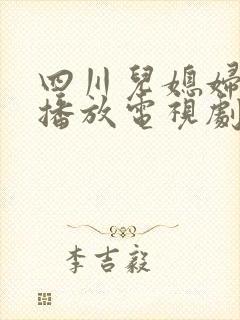 四川兒媳婦
播放電視劇
李吉毅